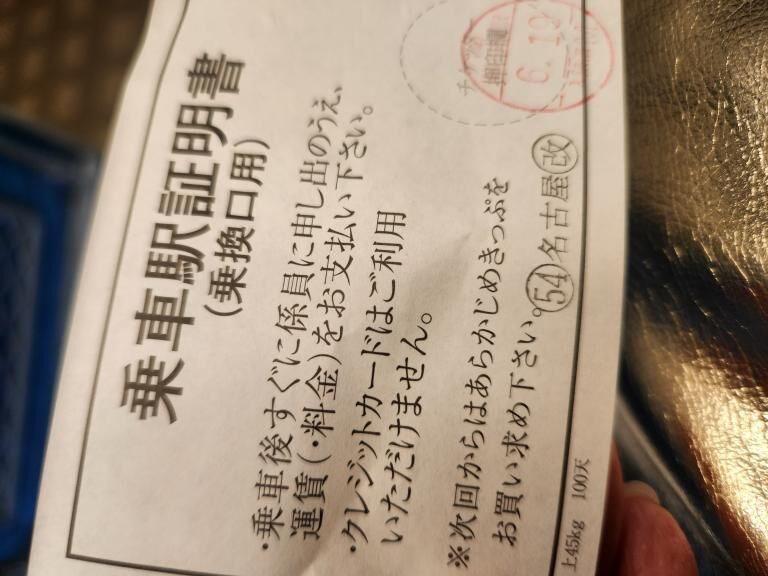 乗車駅証明書
(乗換口用)
・乗車後すぐに係員に申し出のうえ、
運賃(・料金)をお支払い下さい。
・クレジットカードはご利用
いただけません。
※次回からはあらかじめきっぷを
お買い求め下さい。
㊴名古屋㊢
6.19
上45kg 100天